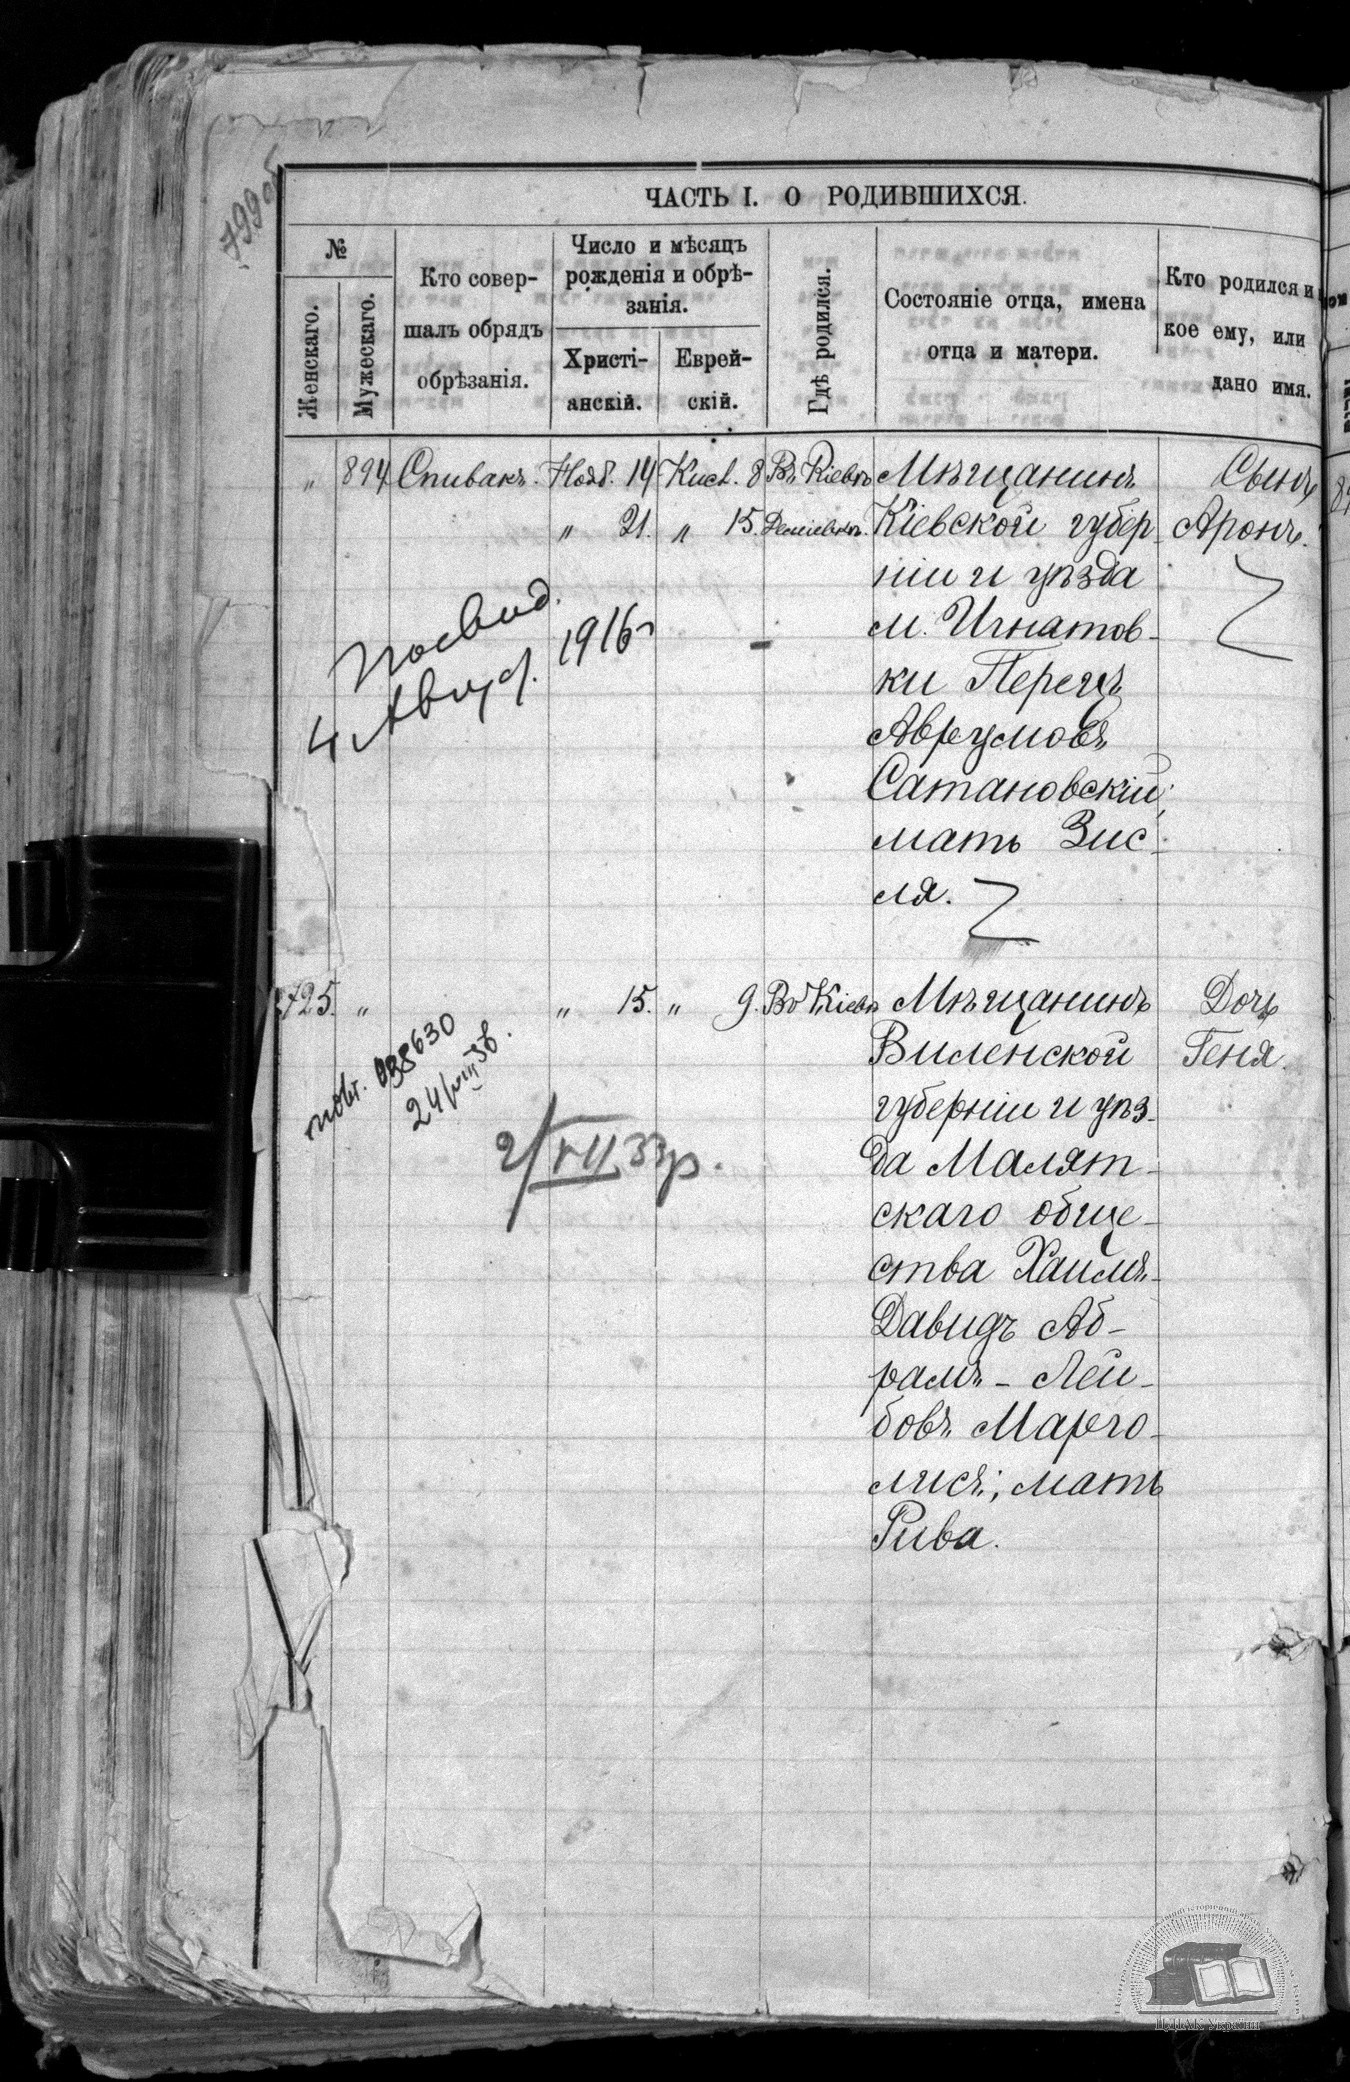 799об
ЧАСТЬ I. О РОДИВШИХСЯ.
№
Женскаго.
Мужескаго.
Кто совер-
шалъ обрядъ
обрѣзанія.
Число и мѣсяцъ
рожденія и обрѣ-
занія.
Христі-
анскій.
Еврей-
скій.
Гдѣ родился.
Состояніе отца, имена
отца и матери.
Кто родился и
кое ему, или
дано имя.
„ 894 Спивакъ. Нояб. 14 Кисл. 8 Въ Кіевѣ Мѣщанинъ Сынъ
„ 21. „ 15. Деміевкѣ. Кіевской губер- Аронъ.
ніи и уѣзда
м. Игнатов-
ки Перецъ
Аврумовъ
Сатановскій;
мать Зис-
ля.
Посвид.
4 Август. 1916 г
725. „ „ 15. „ 9. Въ Кіевѣ Мѣщанинъ Дочь
Виленской Геня.
губерніи и уѣз-
да Малят-
скаго обще-
ства Хаимъ-
Давидъ Аб-
рамъ-Лей-
бовъ Марго-
лисъ; мать
Рива.
повт.
24/VIII
2/VII 33р.
ЦДІАК України